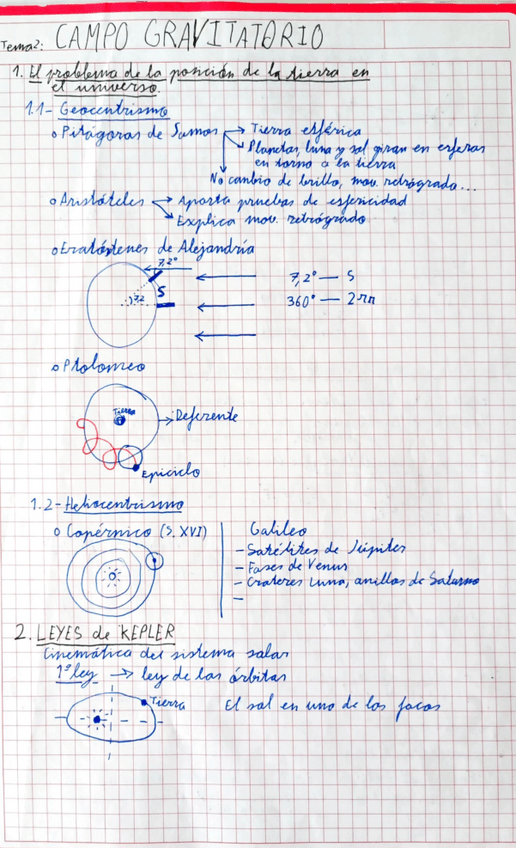 Tema 2: CAMPO GRAVITATORIO
1. El problema de la posición de la tierra en
el universo.
1.1- Geocentrismo
o Pitágoras de Samos → Tierra esférica
Planetas, luna y sol giran en esferas
en torno a la tierra
No cambio de brillo, mov. retrógrado...
o Aristóteles → Aporta pruebas de esfericidad
Explica mov. retrógrado
o Eratóstenes de Alejandría
7,2°
S
7,2
7,2° — S
360° — 2πr
o Ptolomeo
Tierra
→ Deferente
Epiciclo
1.2- Heliocentrismo
o Copérnico (S. XVI)
Galileo
- Satélites de Júpiter
- Fases de Venus
- Crateres Luna, anillos de Saturno
-
2. LEYES de KEPLER
Cinemática del sistema solar
1ª ley → ley de las órbitas
Tierra
El sol en uno de los focos